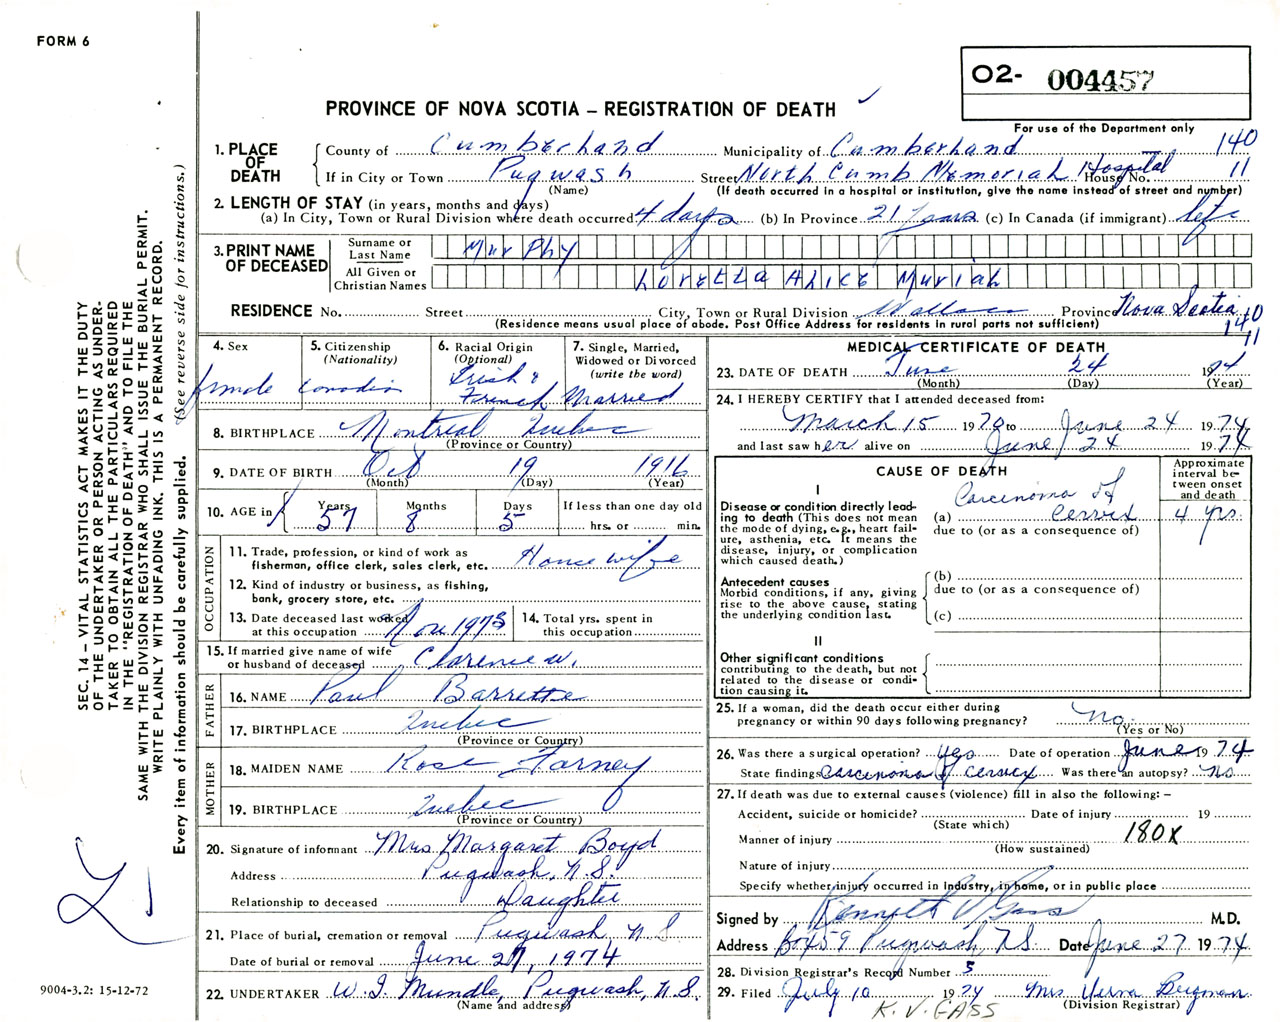 FORM 6
O2- 004457
PROVINCE OF NOVA SCOTIA – REGISTRATION OF DEATH ✓
For use of the Department only
1. PLACE OF DEATH
County of Cumberland Municipality of Cumberland 140
If in City or Town Pugwash Street North Cumb Memorial Hospital House No. 11
(Name) (If death occurred in a hospital or institution, give the name instead of street and number)
2. LENGTH OF STAY (in years, months and days)
(a) In City, Town or Rural Division where death occurred 4 days (b) In Province 21 years (c) In Canada (if immigrant) life
3. PRINT NAME OF DECEASED
Surname or Last Name Murphy
All Given or Christian Names Loretta Alice Muriah
RESIDENCE No. Street City, Town or Rural Division Wallace Province Nova Scotia
(Residence means usual place of abode. Post Office Address for residents in rural parts not sufficient) 140
11
4. Sex female
5. Citizenship (Nationality) Canadian
6. Racial Origin (Optional) Irish & French
7. Single, Married, Widowed or Divorced (write the word) Married
8. BIRTHPLACE Montreal Quebec
(Province or Country)
9. DATE OF BIRTH Oct 19 1916
(Month) (Day) (Year)
10. AGE in Years 57 Months 8 Days 5 If less than one day old hrs. or min.
OCCUPATION
11. Trade, profession, or kind of work as fisherman, office clerk, sales clerk, etc. Housewife
12. Kind of industry or business, as fishing, bank, grocery store, etc.
13. Date deceased last worked at this occupation Nov. 1973
14. Total yrs. spent in this occupation
15. If married give name of wife or husband of deceased Clarence W.
FATHER
16. NAME Paul Barrette
17. BIRTHPLACE Quebec
(Province or Country)
MOTHER
18. MAIDEN NAME Rose Farney
19. BIRTHPLACE Quebec
(Province or Country)
20. Signature of informant Mrs Margaret Boyd
Address Pugwash, N.S.
Relationship to deceased Daughter
21. Place of burial, cremation or removal Pugwash N S
Date of burial or removal June 27, 1974
22. UNDERTAKER W. J. Mundle, Pugwash, N.S.
(Name and address)
MEDICAL CERTIFICATE OF DEATH
23. DATE OF DEATH June 24 1974
(Month) (Day) (Year)
24. I HEREBY CERTIFY that I attended deceased from:
March 15 1970 to June 24 1974
and last saw her alive on June 24 1974
CAUSE OF DEATH
Approximate interval between onset and death
I
Disease or condition directly leading to death (This does not mean the mode of dying, e.g., heart failure, asthenia, etc. It means the disease, injury, or complication which caused death.)
(a) Carcinoma of Cervix 4 yrs.
due to (or as a consequence of)
Antecedent causes
Morbid conditions, if any, giving rise to the above cause, stating the underlying condition last.
(b)
due to (or as a consequence of)
(c)
II
Other significant conditions
contributing to the death, but not related to the disease or condition causing it.
25. If a woman, did the death occur either during pregnancy or within 90 days following pregnancy? No
(Yes or No)
26. Was there a surgical operation? yes Date of operation June 1974
State findings Carcinoma of Cervix Was there an autopsy? No
27. If death was due to external causes (violence) fill in also the following: –
Accident, suicide or homicide? Date of injury 19
(State which)
Manner of injury 180X
(How sustained)
Nature of injury
Specify whether injury occurred in Industry, in home, or in public place
Signed by Kenneth V Gass M.D.
Address Box 459 Pugwash N.S. Date June 27 1974
28. Division Registrar's Record Number 5
29. Filed July 10 1974 Mrs Verna Bergman
(Division Registrar)
K. V. GASS
SEC. 14 – VITAL STATISTICS ACT MAKES IT THE DUTY
OF THE UNDERTAKER OR PERSON ACTING AS UNDER-
TAKER TO OBTAIN ALL THE PARTICULARS REQUIRED
IN THE "REGISTRATION OF DEATH" AND TO FILE THE
SAME WITH THE DIVISION REGISTRAR WHO SHALL ISSUE THE BURIAL PERMIT.
WRITE PLAINLY WITH UNFADING INK. THIS IS A PERMANENT RECORD.
Every item of information should be carefully supplied. (See reverse side for instructions.)
9004-3.2: 15-12-72